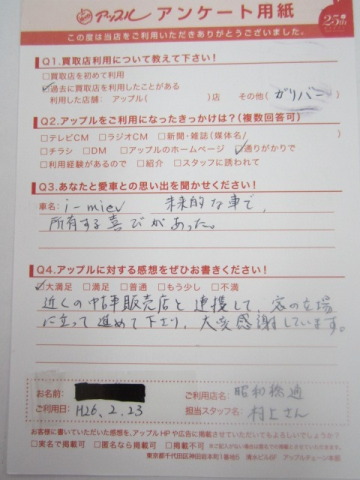 アップル アンケート用紙
25th
この度は当店をご利用いただきありがとうございました。
Q1.買取店利用について教えて下さい!
□買取店を初めて利用
☑過去に買取店を利用したことがある
利用した店舗: アップル( )店 その他(ガリバー)
Q2.アップルをご利用になったきっかけは?(複数回答可)
□テレビCM □ラジオCM □新聞・雑誌(媒体名/ )
□チラシ □DM □アップルのホームページ ☑通りがかりで
□利用経験があるので □紹介 □スタッフに誘われて
Q3.あなたと愛車との思い出を聞かせください!
車名: i-miev 未来的な車で、
所有する喜びがあった。
Q4.アップルに対する感想をぜひお書きください!
☑大満足 □満足 □普通 □もう少し □不満
近くの中古車販売店と連携して、客の立場
に立って進めて下さり、大変感謝しています。
お名前:
ご利用店名: 昭和橋通
ご利用日: H26.2.23
担当スタッフ名: 村上さん
お客様に書いていただいた感想を、アップルHPや広告に掲載させていただいてもよろしいでしょうか?
□実名で掲載可 □匿名なら掲載可
東京都千代田区神田岩本町1番地6 清水ビル6F アップルチェーン本部